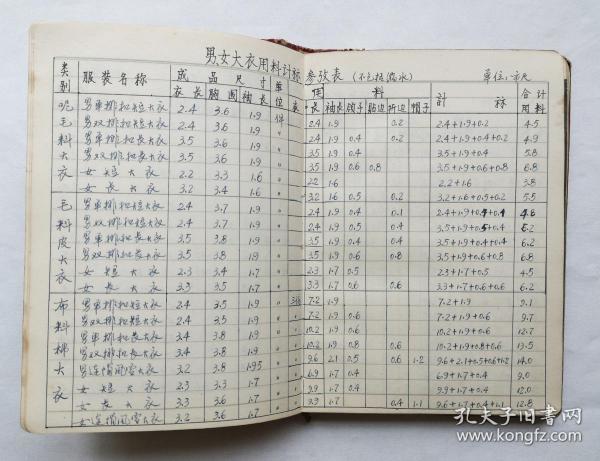 男女大衣用料计称参攷表（不包括缩水） 单位：市尺
类别 服装名称 成品尺寸 单位 用料 计称 合计用料
衣长 胸围 袖长 衣长 袖长 领子 贴边 折边 帽子
呢毛料大衣
男单排扣短大衣 2.4 3.6 1.9 件 2.4 1.9 0.2 2.4+1.9+0.2 4.5
男双排扣短大衣 2.4 3.6 1.9 〃 2.4 1.9 0.4 0.2 2.4+1.9+0.4+0.2 4.9
男单排扣长大衣 3.5 3.6 1.9 〃 3.5 1.9 0.4 3.5+1.9+0.4 5.8
男双排扣长大衣 3.5 3.6 1.9 〃 3.5 1.9 0.6 0.8 3.5+1.9+0.6+0.8 6.8
女短大衣 2.2 3.3 1.6 〃 2.2 1.6 2.2+1.6 3.8
女长大衣 3.2 3.4 1.6 〃 3.2 1.6 0.5 0.2 3.2+1.6+0.9+0.2 5.5
毛料皮大衣
男单排扣短大衣 2.4 3.7 1.9 〃 2.4 1.9 0.4 0.1 4.8
男双排扣短大衣 2.4 3.7 1.9 〃 2.4 1.9 0.5 0.4 5.2
男单排扣长大衣 3.5 3.8 1.9 〃 3.5 1.9 0.4 0.4 3.5+1.9+0.4+0.4 6.2
男双排扣长大衣 3.5 3.8 1.9 〃 3.5 1.9 0.6 0.8 3.5+1.9+0.6+0.8 6.8
女短大衣 2.3 3.4 1.7 〃 2.3 1.7 0.5 2.3+1.7+0.5 4.5
女长大衣 3.3 3.5 1.7 〃 3.3 1.7 0.6 0.6 3.3+1.7+0.6+0.6 6.2
布料棉大衣
男单排扣短大衣 2.4 3.5 1.9 〃 7.2 1.9 7.2+1.9 9.1
男双排扣短大衣 2.4 3.5 1.9 〃 7.2 1.9 0.6 7.2+1.9+0.6 9.7
男单排扣长大衣 3.4 3.8 1.9 〃 10.2 1.9 0.6 10.2+1.9+0.6 12.7
男双排扣长大衣 3.4 3.8 1.9 〃 10.2 1.9 0.8 0.6 10.2+1.9+0.8+0.6 13.5
男连帽风雪大衣 3.2 3.8 1.95 〃 9.6 2.1 0.5 0.6 1.2 9.6+2.1+0.5+0.6+1.2 14.0
女短大衣 2.3 3.3 1.7 〃 6.9 1.7 0.4 6.9+1.7+0.4 9.0
女长大衣 3.3 3.6 1.7 〃 9.9 1.7 0.4 9.9+1.7+0.4 12.0
女连帽风雪大衣 3.2 3.6 1.7 〃 1.7 0.4 1.1 9.6+1.7+0.4+1.1 12.8
孔夫子旧书网
www.kongfz.com